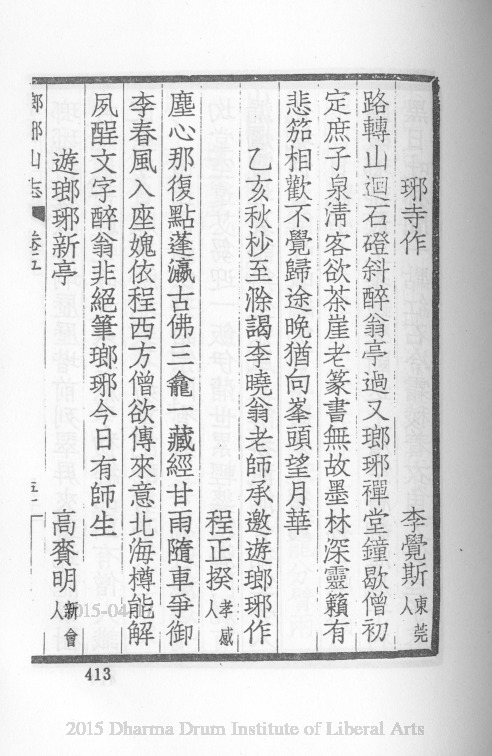 琊寺作　李覺斯東莞人
路轉山迴石磴斜醉翁亭過又瑯琊禪堂鐘歇僧初
定庶子泉清客欲茶崖老篆書無故墨林深靈籟有
悲笳相歡不覺歸途晚猶向峯頭望月華
乙亥秋杪至滁謁李曉翁老師承邀遊瑯琊作
程正揆孝感人
塵心那復點蓬瀛古佛三龕一藏經甘雨隨車爭御
李春風入座媿依程西方僧欲傳來意北海樽能解
夙酲文字醉翁非絕筆瑯琊今日有師生
遊瑯琊新亭　高賚明新會人
瑯琊山志　卷五
413
2015 Dharma Drum Institute of Liberal Arts